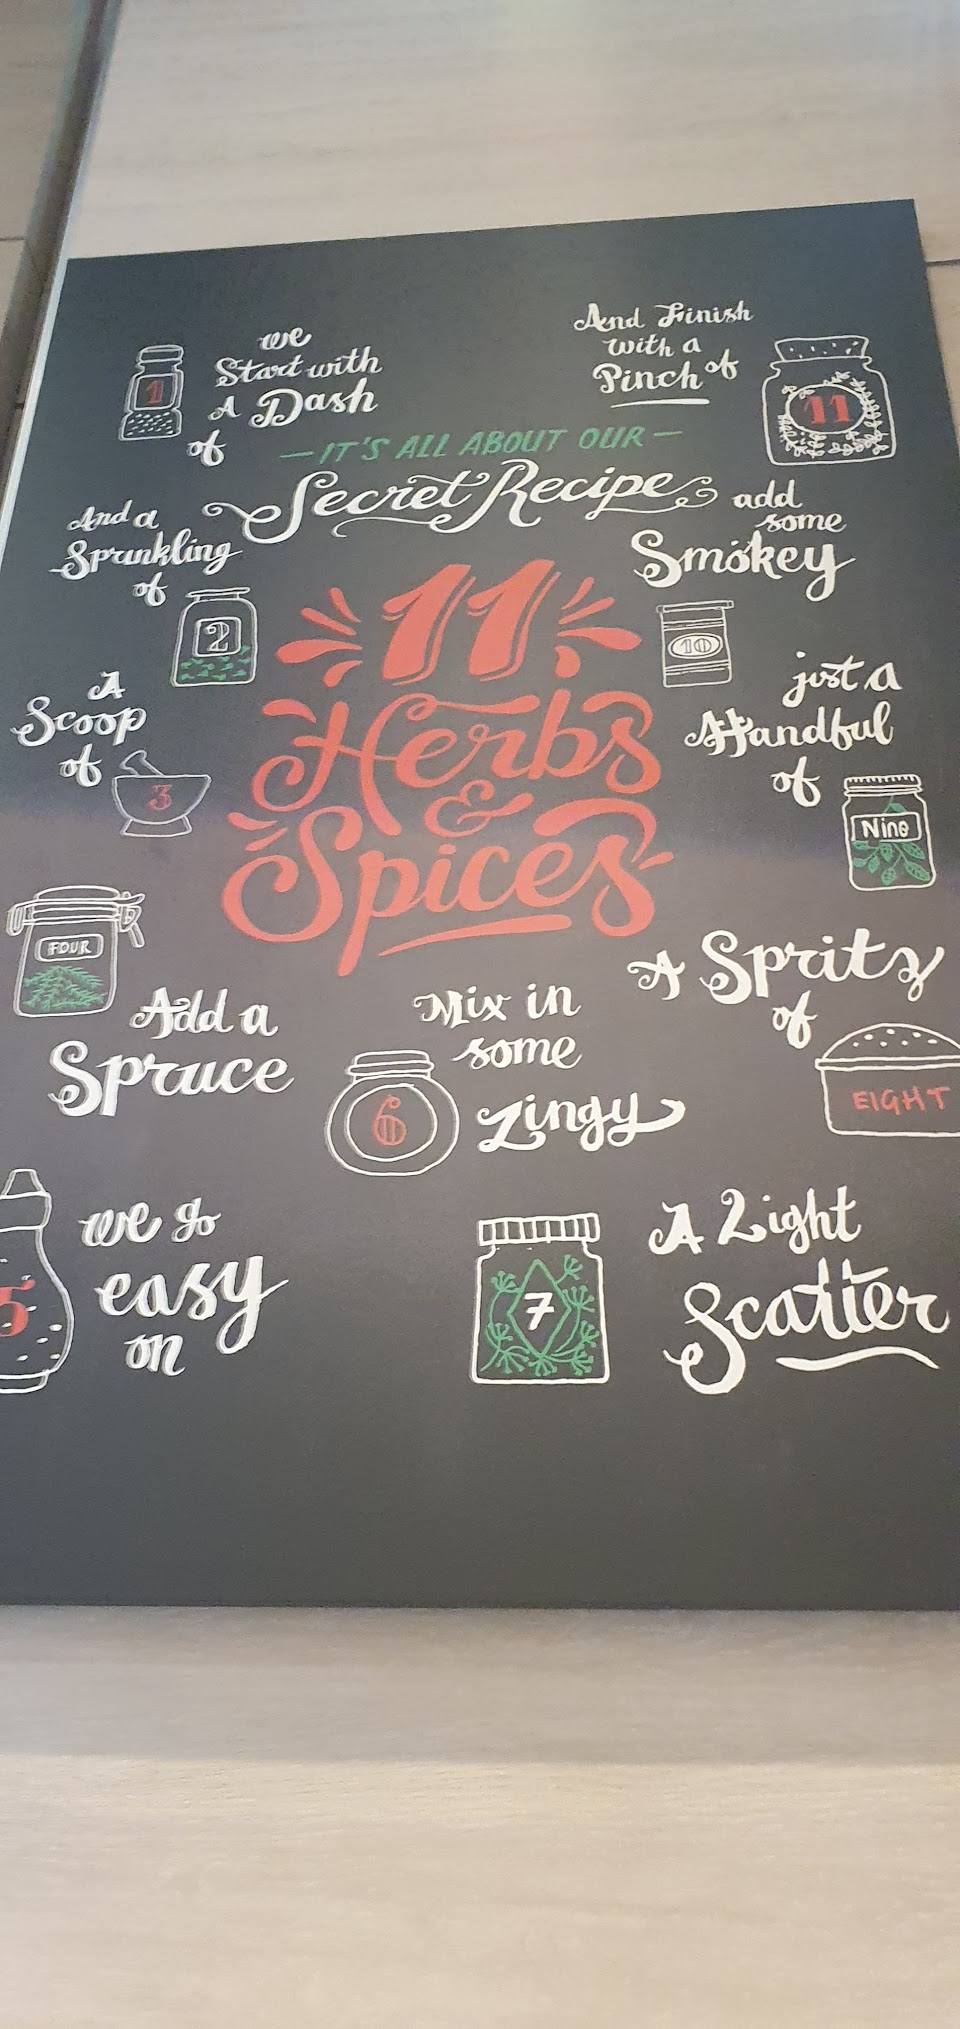 we
Start with
A Dash
of
1
And Finish
with a
Pinch of
11
— IT'S ALL ABOUT OUR —
Secret Recipe
11
Herbs
&
Spices
And a
Sprinkling
of
2
A
Scoop
of
3
FOUR
Add a
Spruce
we go
easy
on
5
Mix in
some
Zingy
6
7
A Light
Scatter
A Spritz
of
EIGHT
just a
Handful
of
Nine
add
some
Smokey
10